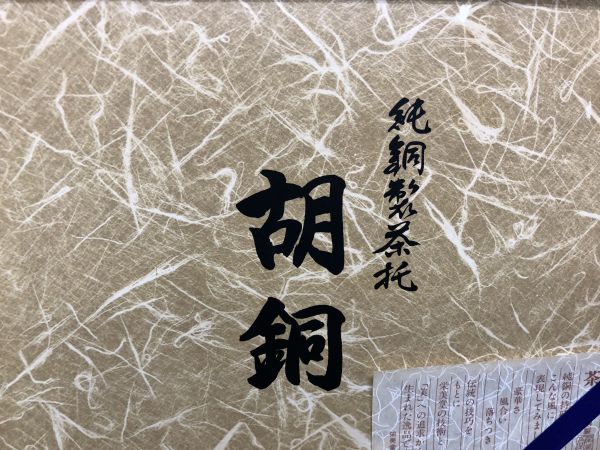 純銅製茶托
胡銅
茶
純銅の持
こんな風に
表現してみま
豪華さ
風合い
落ちつき
伝統の技巧を
もとに
栄美堂の技術と
「美」への追求が
生まれた逸品で